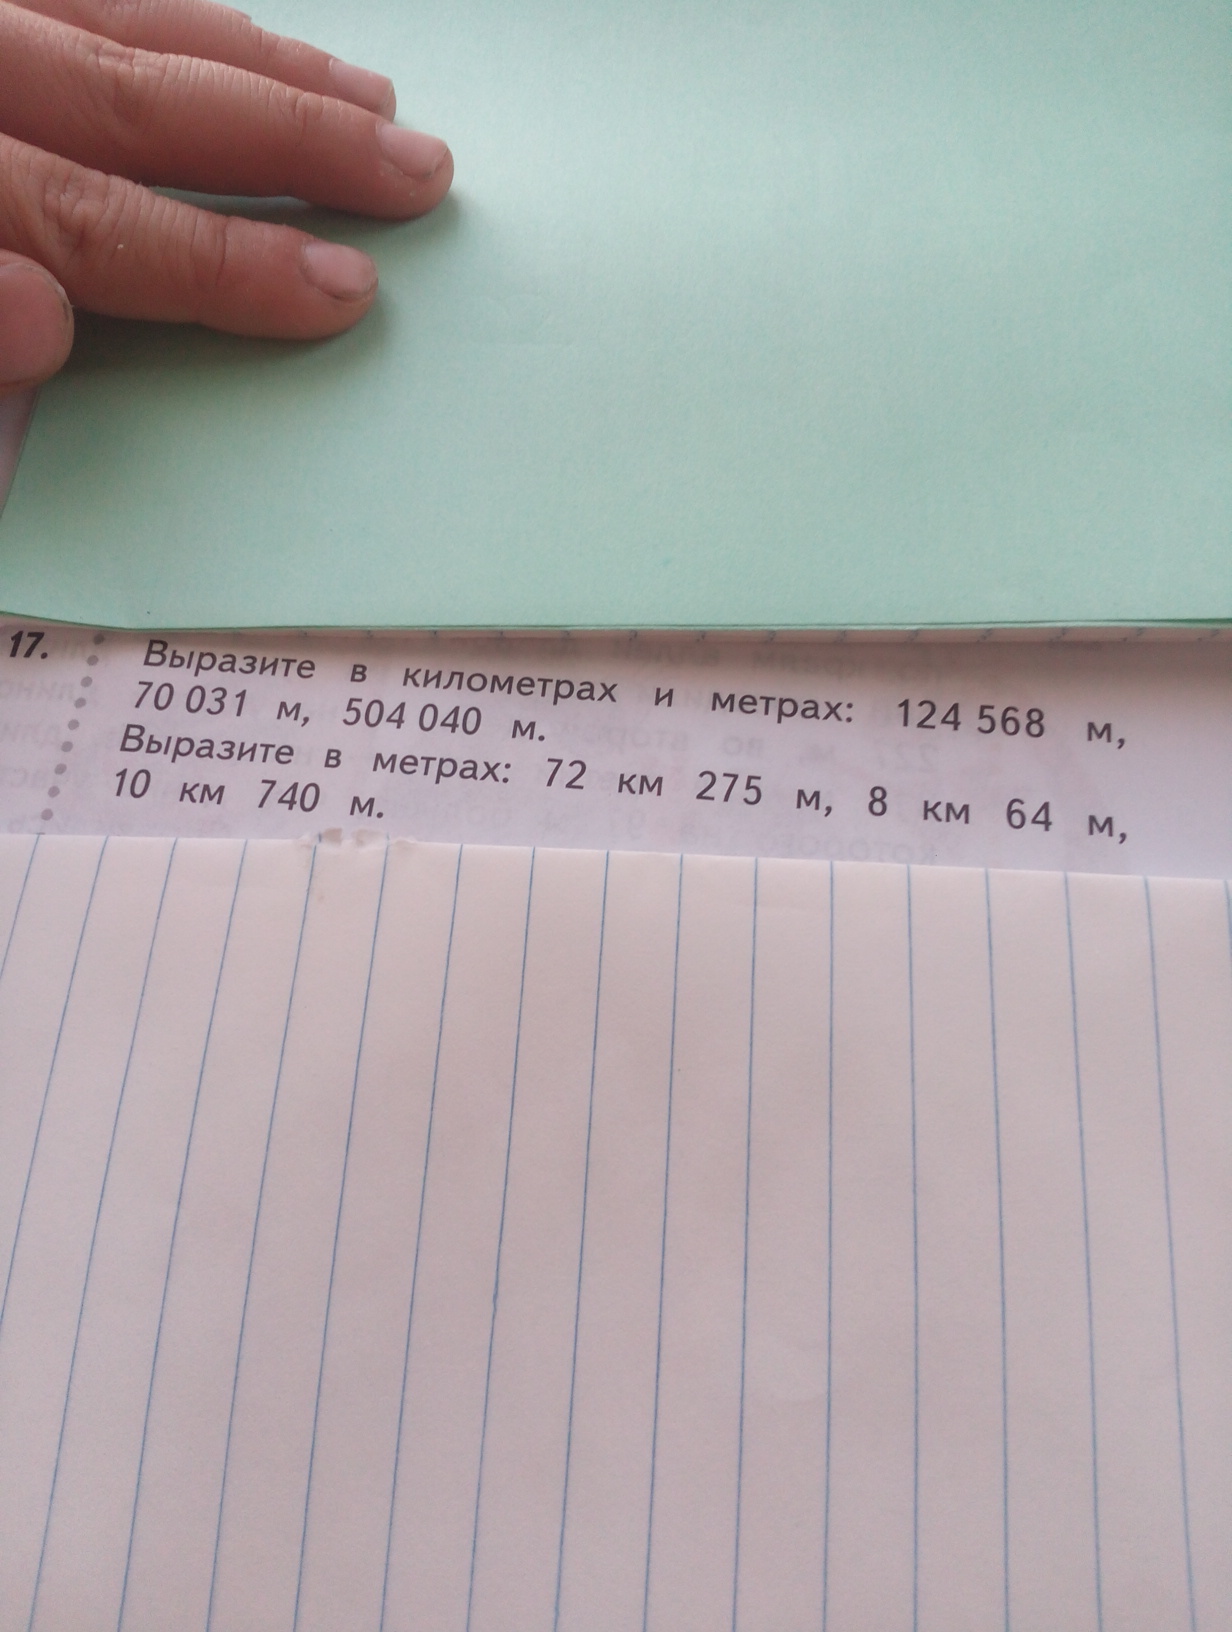 17. Выразите в километрах и метрах: 124 568 м,
70 031 м, 504 040 м.
Выразите в метрах: 72 км 275 м, 8 км 64 м,
10 км 740 м.